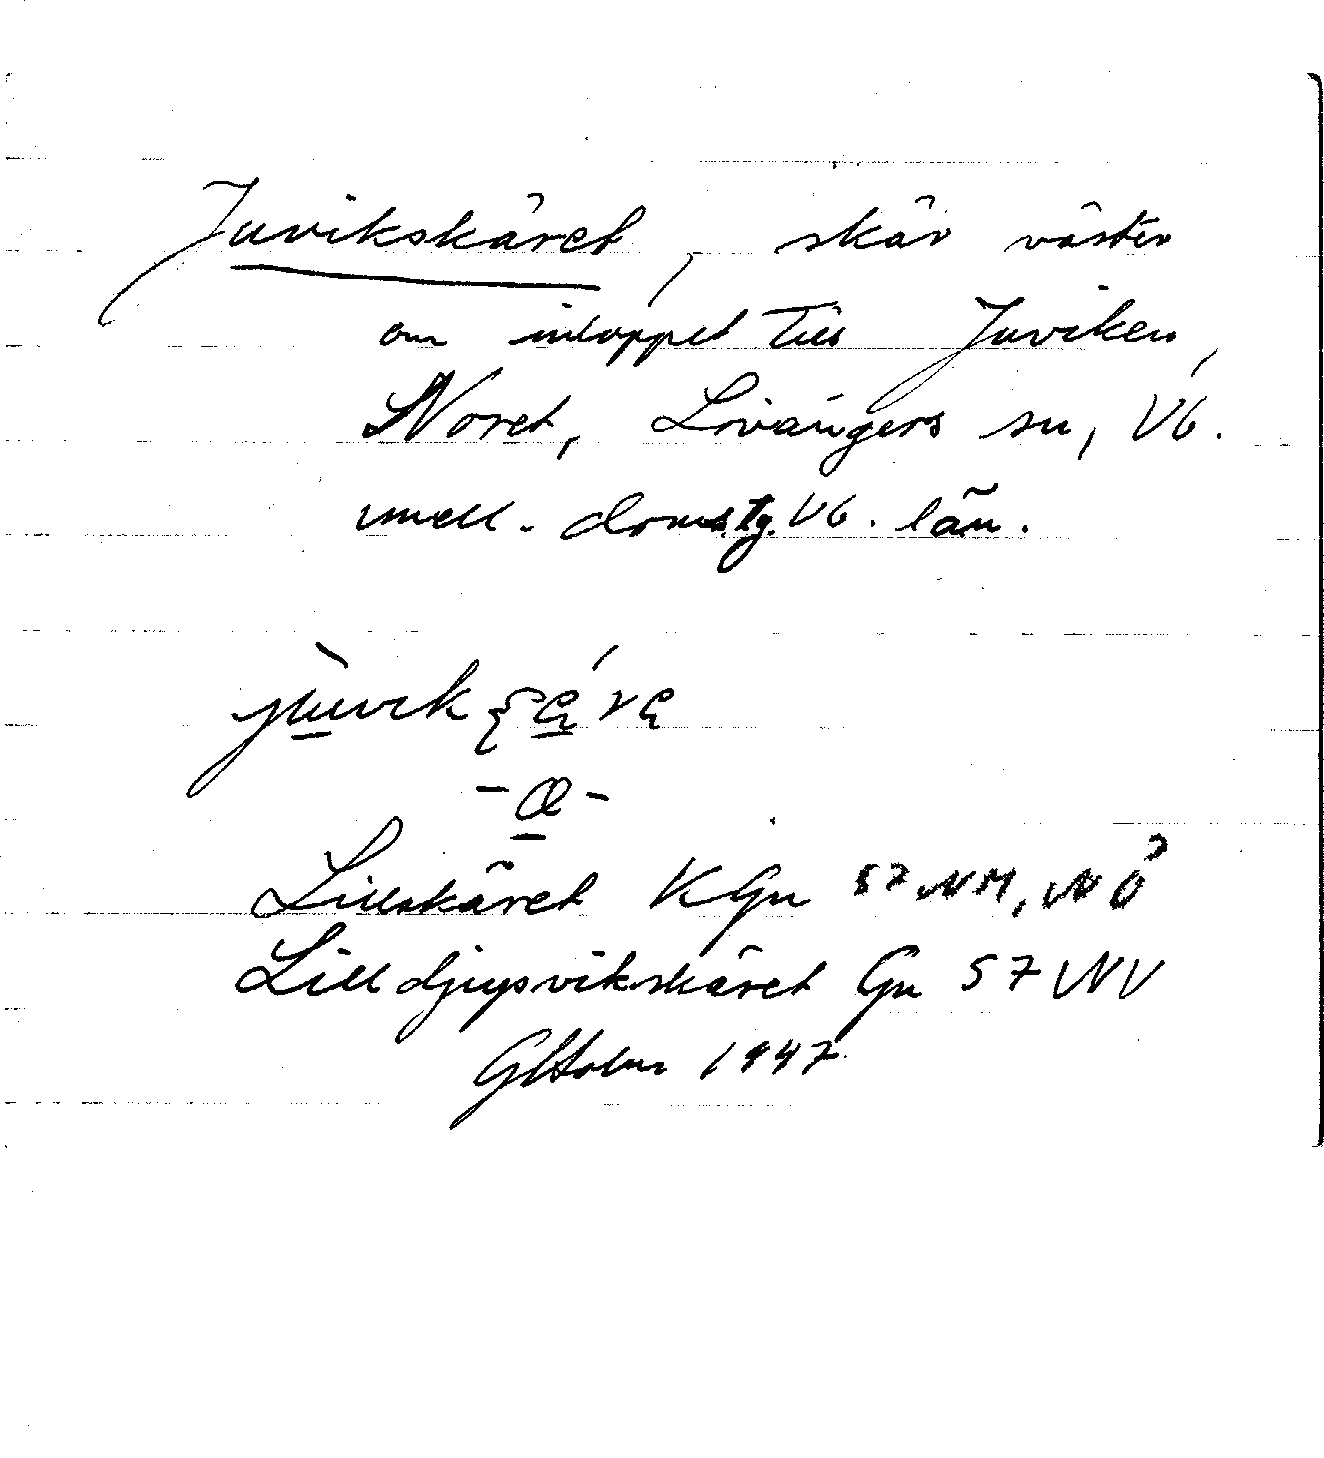 Juvikskäret, skär väster
om inloppet till Juviken,
Noret, Lövångers sn, Vb.
mell. domstg. Vb. län.
-a-
Lillskäret KGn 57 NM, NÖ
Lilldjupsvikskäret Gn 57 NV
1947